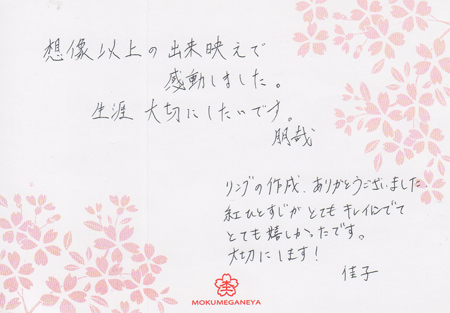 想像以上の出来映えで
感動しました。
生涯 大切にしたいです。
朋哉
リングの作成、ありがとうございました
紅ひとすじが とても キレイにでて
とても嬉しかったです。
大切にします!
佳子
MOKUMEGANEYA